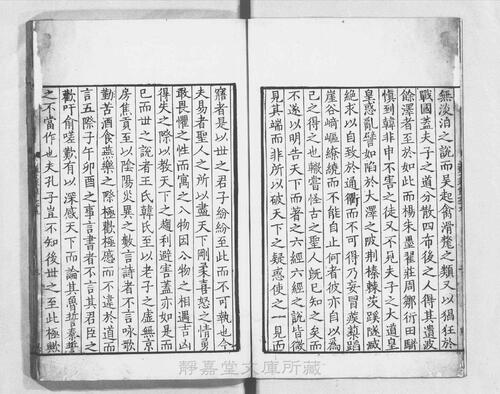 無淩泊之說而吳起禽滑釐之類又以猖狂於
戰國蓋夫子之道分散四布後之人得其遺波
餘澤者至於如此而楊朱墨翟莊周鄒衍田駢
慎到韓非申不害之徒又不見夫子之大道皇
皇惑亂譬如陷於大澤之陂荆榛棘茨蹊隧滅
絶求以自致於通衢而不可得乃妄冒蒺藜蹈
崖谷崎嶇繚繞而不能自止何者彼亦自以爲
己之得之也轍嘗怪古之聖人旣已知之矣而
不遂以明告天下而著之六經六經之說皆微
見其端而非所以破天下之疑惑使之一見而
寤者是以世之君子紛紛至此而不可執也今
夫易者聖人之所以盡天下剛柔喜怒之情勇
敢畏懼之性而寓之八物因八物之相遇吉凶
得失之際以教天下之趨利避害蓋亦如是而
已而世之說者王氏韓氏至以老子之虛無京
房焦貢至以陰陽災異之數言詩者不言詠歌
勤苦酒食燕樂之際極歡極感而不違於道而
言五際子午卯酉之事言書者不言其君臣之
歡吁俞嗟歎有以深感天下而論其魯誓秦誓
之不當作也夫孔子豈不知後世之至此極歟
靜嘉堂文庫所藏